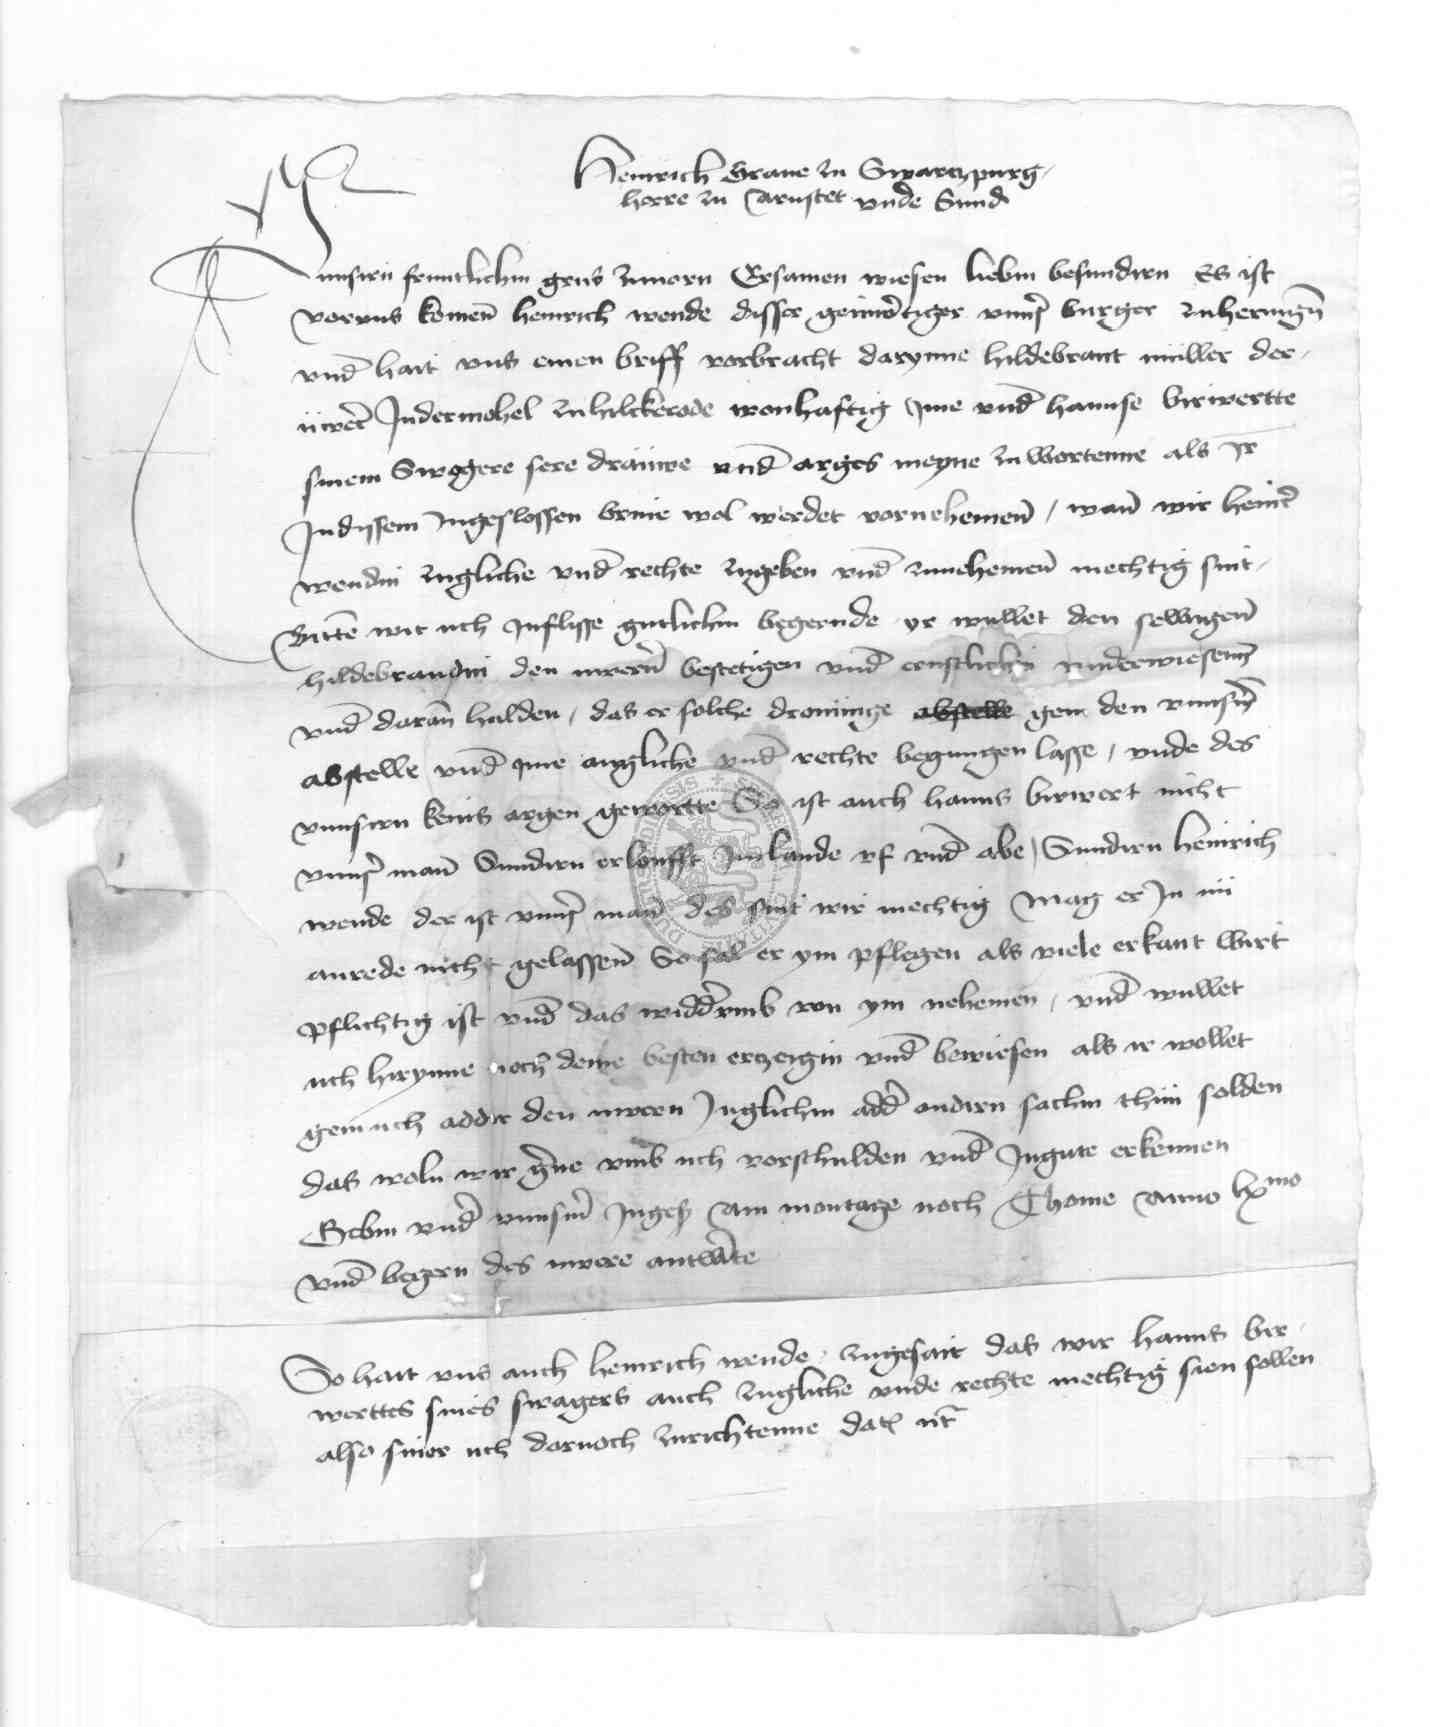 Heinrich Graue zu Swartzpurg
herre zu Arnstet vnde Sund
vnnsirn fruntlichin grus zuuorn Ersamen wiesen liebin besundirn Es ist
vor vns komen Heinrich wende disser geinwertiger vnnsir burger zu herungen
vnd hait vns einen briff vorbracht darynne hildebrant müller der
uwer Indermohel zu hilckerode wonhaftig yme vnd hannse birwertte
sinem Swogere sere drauwe vnd arges meyne zu wartenne als Ir
In dissem Ingeslossen briue wol werdet vornehemen / wan wir heinr
wendin zugliche vnd rechte zugeben vnd zunehemen mechtig sint
Bitten wir uch Inflisse gutlichin begernde yr wullet den sewigen
hildebrandin den uwern bestetigen vnd ernstlichin vnderwiesen
vnd daran halden / das er solche drouunge gein den vnnsirn
abstelle vnd yme an gliche vnd rechte begnugen lasse / vnde des
vnnsirn keins argen gewartte So ist auch hanns birwert nicht
vnnsir man Sundirn er loufft Imlande vf vnd abe / Sundirn heinrich
wende der ist vnnsir man des sint wir mechtig Mag er In
anrede nicht gelassen So sal er ym pflegen als viele erkant wirt
pflichtig ist vnd das widdervmb von ym nehemen / vnd wullet
uch hirynne noch deme besten erzeigin vnd bewiesen als ir wollet
gein uch addir den uwern Inglichin adder andirn sachin thun solden
das woln wir gerne vmb uch vorschulden vnd Ingute erkennen
Gebin vnder vnnserm Inges Am montage noch Thome Anno lxmo
vnd begern des uwere antwerte
So hait vns auch heinrich wende zugesait das wir hanns bir
werttes sines swagers auch zugliche vnde rechte mechtig sien sollen
also sint er uch darnoch zurichtenne dat ut